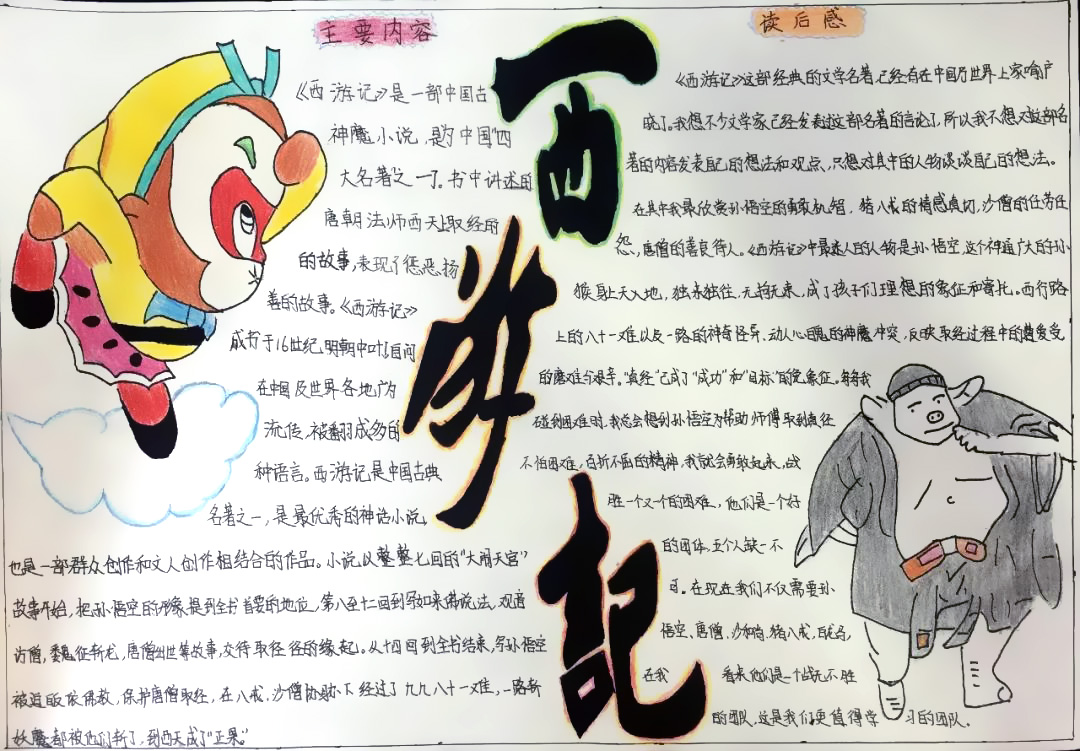 主要内容
《西游记》是一部中国古
神魔小说,是为中国"四
大名著"之一了。书中讲述的
唐朝法师西天上取经的
的故事,表现了惩恶扬
善的故事。《西游记》
成书于16世纪明朝中叶自问
在中国及世界各地广为
流传,被翻成多的
种语言。西游记是中国古典
名著之一,是最优秀的神话小说,
也是一部群众创作和文人创作相结合的作品。小说以整整七回的"大闹天宫"
故事开始,把孙悟空的形象提到全书首要的地位,第八至十二回到写如来佛说法,观音
访僧,魏征斩龙,唐僧出世等故事,交待取经径的缘起。从十四回到全书结束,写孙悟空
被迫皈依佛教,保护唐僧取经,在八戒,沙僧协助下经过了九九八十一难,一路斩
妖魔都被他们斩了,到西天成了"正果。"
西游记
读后感
《西游记》这部经典的文学名著已经有在中国乃世界上家喻户
晓了。我想不少文学家已经发表过这部名著的言论了,所以我不想对这部名
著的内容发表自己的想法和观点,只想对其中的人物谈谈自己的想法。
在其中我最欣赏孙悟空的勇敢机智,猪八戒的情感真切,沙僧的任劳任
怨,唐僧的善良待人。《西游记》中最迷人的人物是孙悟空,这个神通广大的孙
猴身上天入地,独来独往,无拘无束,成了孩子们理想的象征和寄托。西行路
上的八十一难以及一路的神奇怪异、动人心魄的神魔冲突,反映取经过程中的遭受
的磨难与艰辛。"真经"已成了"成功"和"目标"的象征。每每我
碰到困难时,我总会想到孙悟空为帮助师傅取到真经
不怕困难,百折不屈的精神,我就会勇敢起来,战
胜一个又一个的困难,他们是一个好
的团体,五个人缺一不
可。在现在我们不仅需要孙
悟空、唐僧、沙和尚、猪八戒、白龙马,
在我看来他们是一个战无不胜
的团队,这是我们更值得学习的团队。